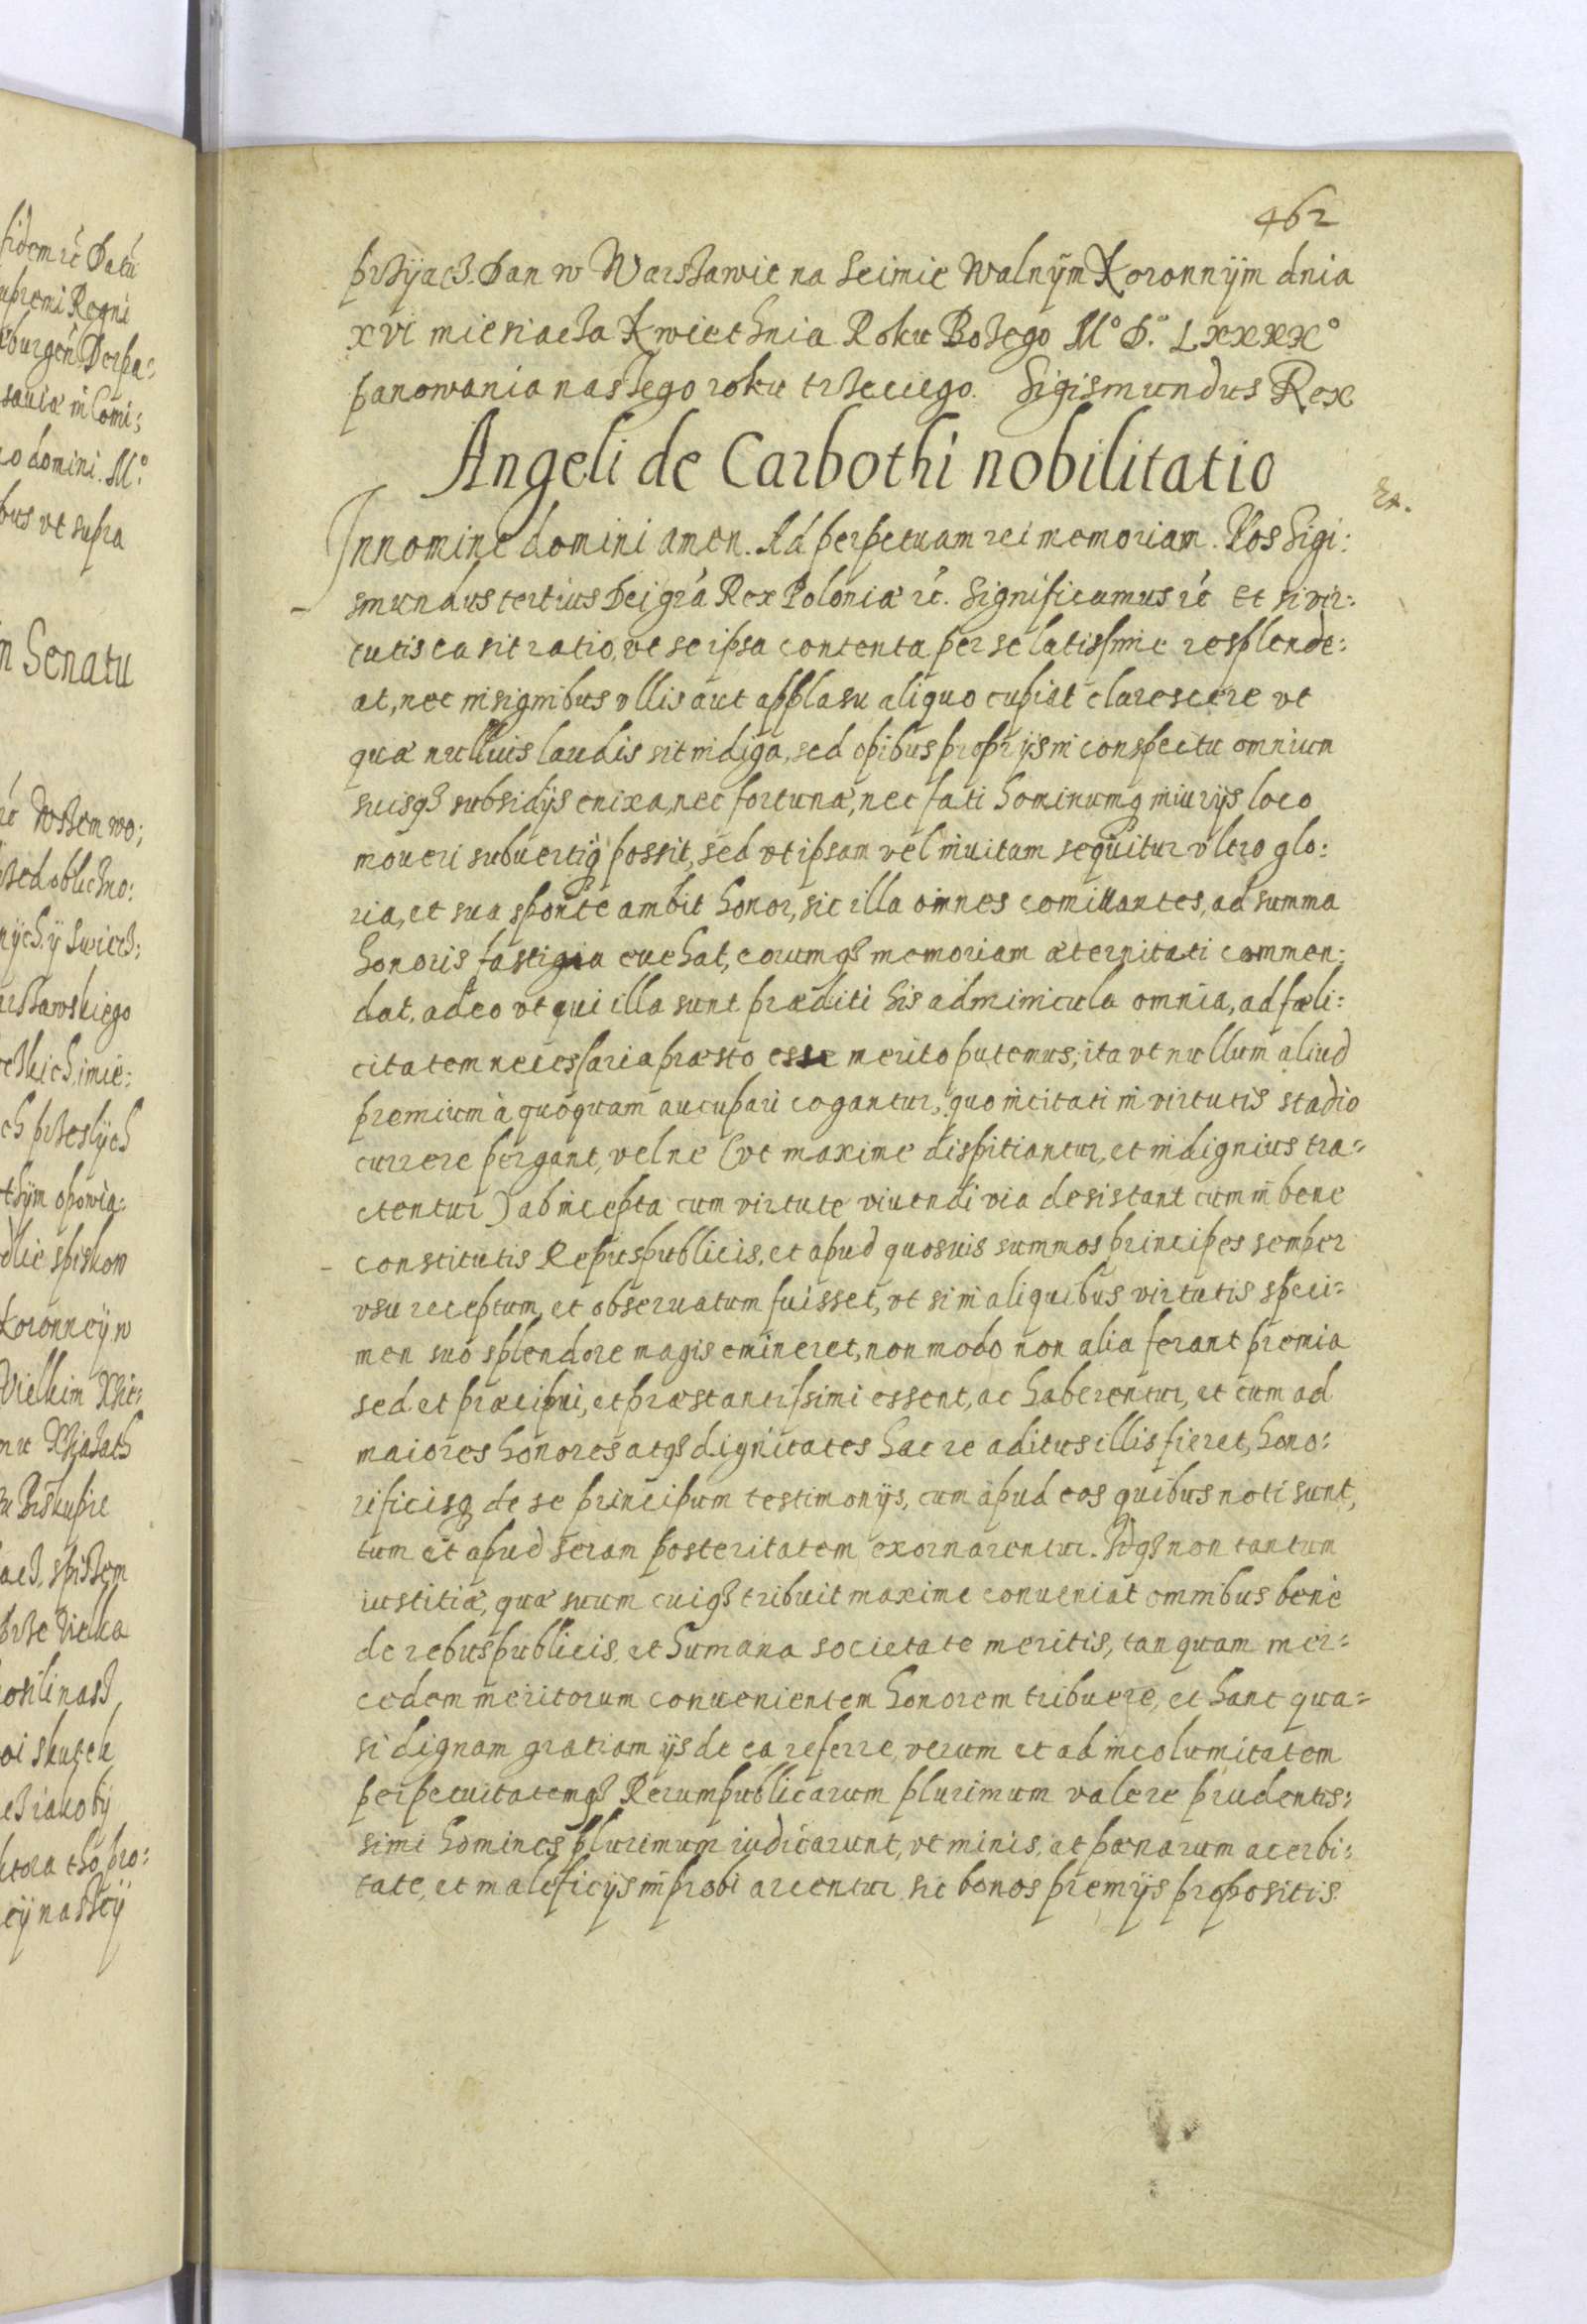 462
przÿacz. Dan w Warszawie na Seimie Walnÿm Koronnÿm dnia
xvi miesiacza Kwiethnia Roku Bozego Mº D.º Lxxxxº
panowania naszego roku trzeciego. Sigismundus Rex
Angeli de Carbothi nobilitatio
Ex.
Innomine domini amen. Ad perpetuam rei memoriam. Nos Sigi:
smundus tertius Dei gra Rex Poloniæ rc. Significamus rc et si vir:
tutis ea sit ratio, vt se ipsa contenta per se latissime resplende:
at, nec insignibus vllis aut applasu aliquo cupiat clarescere vt
quæ nullius laudis sit indiga, sed opibus proprijs in conspectu omnium
suisq3 subsidijs enixa, nec fortunæ, nec fati hominumq iniurijs loco
moueri subuertiq possit, sed vt ipsam vel inuitam sequitur vltro glo:
ria, et sua sponte ambit honor, sic illa omnes comittantes, ad summa
honoris fastigia euehat, eorumq3 memoriam æternitati commen:
dat, adeo vt qui illa sunt præditi his adminicula omnia, ad fæli:
citatem necessaria præsto esse merito putemus, ita vt nullum aliud
premium à quoquam aucupari cogantur, quo incitati in virtutis stadio
currere pergant, vel ne (vt maxime dispitiantur, et indignius tra=
ctentur) ab incepta cum virtute viuendi via desistant cum in bene
constitutis Repuspublicis, et apud quosuis summos principes semper
vsu receptum, et obseruatum fuisset, vt si in aliquibus virtutis speci=
men suo splendore magis emineret, non modo non alia ferant premia
sed et præcipui, et præstantissimi essent, ac haberentur, et cum ad
maiores honores atq3 dignitates hac re aditus illis fieret, hono:
rificisq de se principum testimonijs, cum apud eos quibus noti sunt,
tum et apud seram posteritatem exornarentur. Idq3 non tantum
iustitiæ, quæ suum cuiq3 tribuit maxime conueniat omnibus bene
de rebuspublicis, et humana societate meritis, tanquam mer=
cedem meritorum conuenientem honorem tribuere, et hanc qua=
si dignam gratiam ijs de ea referre, verum et ad incolumitatem
perpetuitatemq3 Rerumpublicarum plurimum valere prudentis:
simi homines plurimum iudicarunt, vt minis, et pænarum acerbi:
tate, et maleficijs improbi arcentur, sic bonos premijs propositis